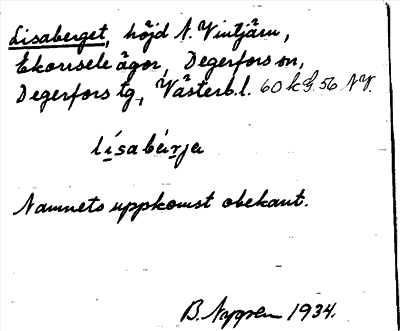 Lisaberget, höjd N. Vintjärn,
Ekorrsele ägor, Degerfors sn,
Degerfors tg, Västerb.l. 60 k bl. 56 NV.
lísabärja
Namnets uppkomst obekant.
B. Nygren 1934.